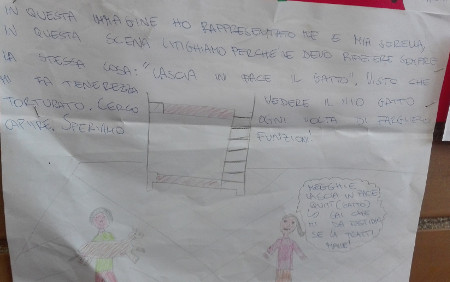 IN QUESTA IMMAGINE HO RAPPRESENTATO ME E MIA SORELLA,
IN QUESTA SCENA LITIGHIAMO PERCHÉ LE DEVO RIPETERE SEMPRE
LA STESSA COSA: "LASCIA IN PACE IL GATTO". VISTO CHE
MI FA TENEREZZA VEDERE IL MIO GATTO
TORTURATO. CERCO OGNI VOLTA DI FARGLIELO
CAPIRE. SPERIAMO FUNZIONI
LASCIA IN PACE
(GATTO)
LO SAI CHE
MI DA
SE LO TRATTI
MALE!